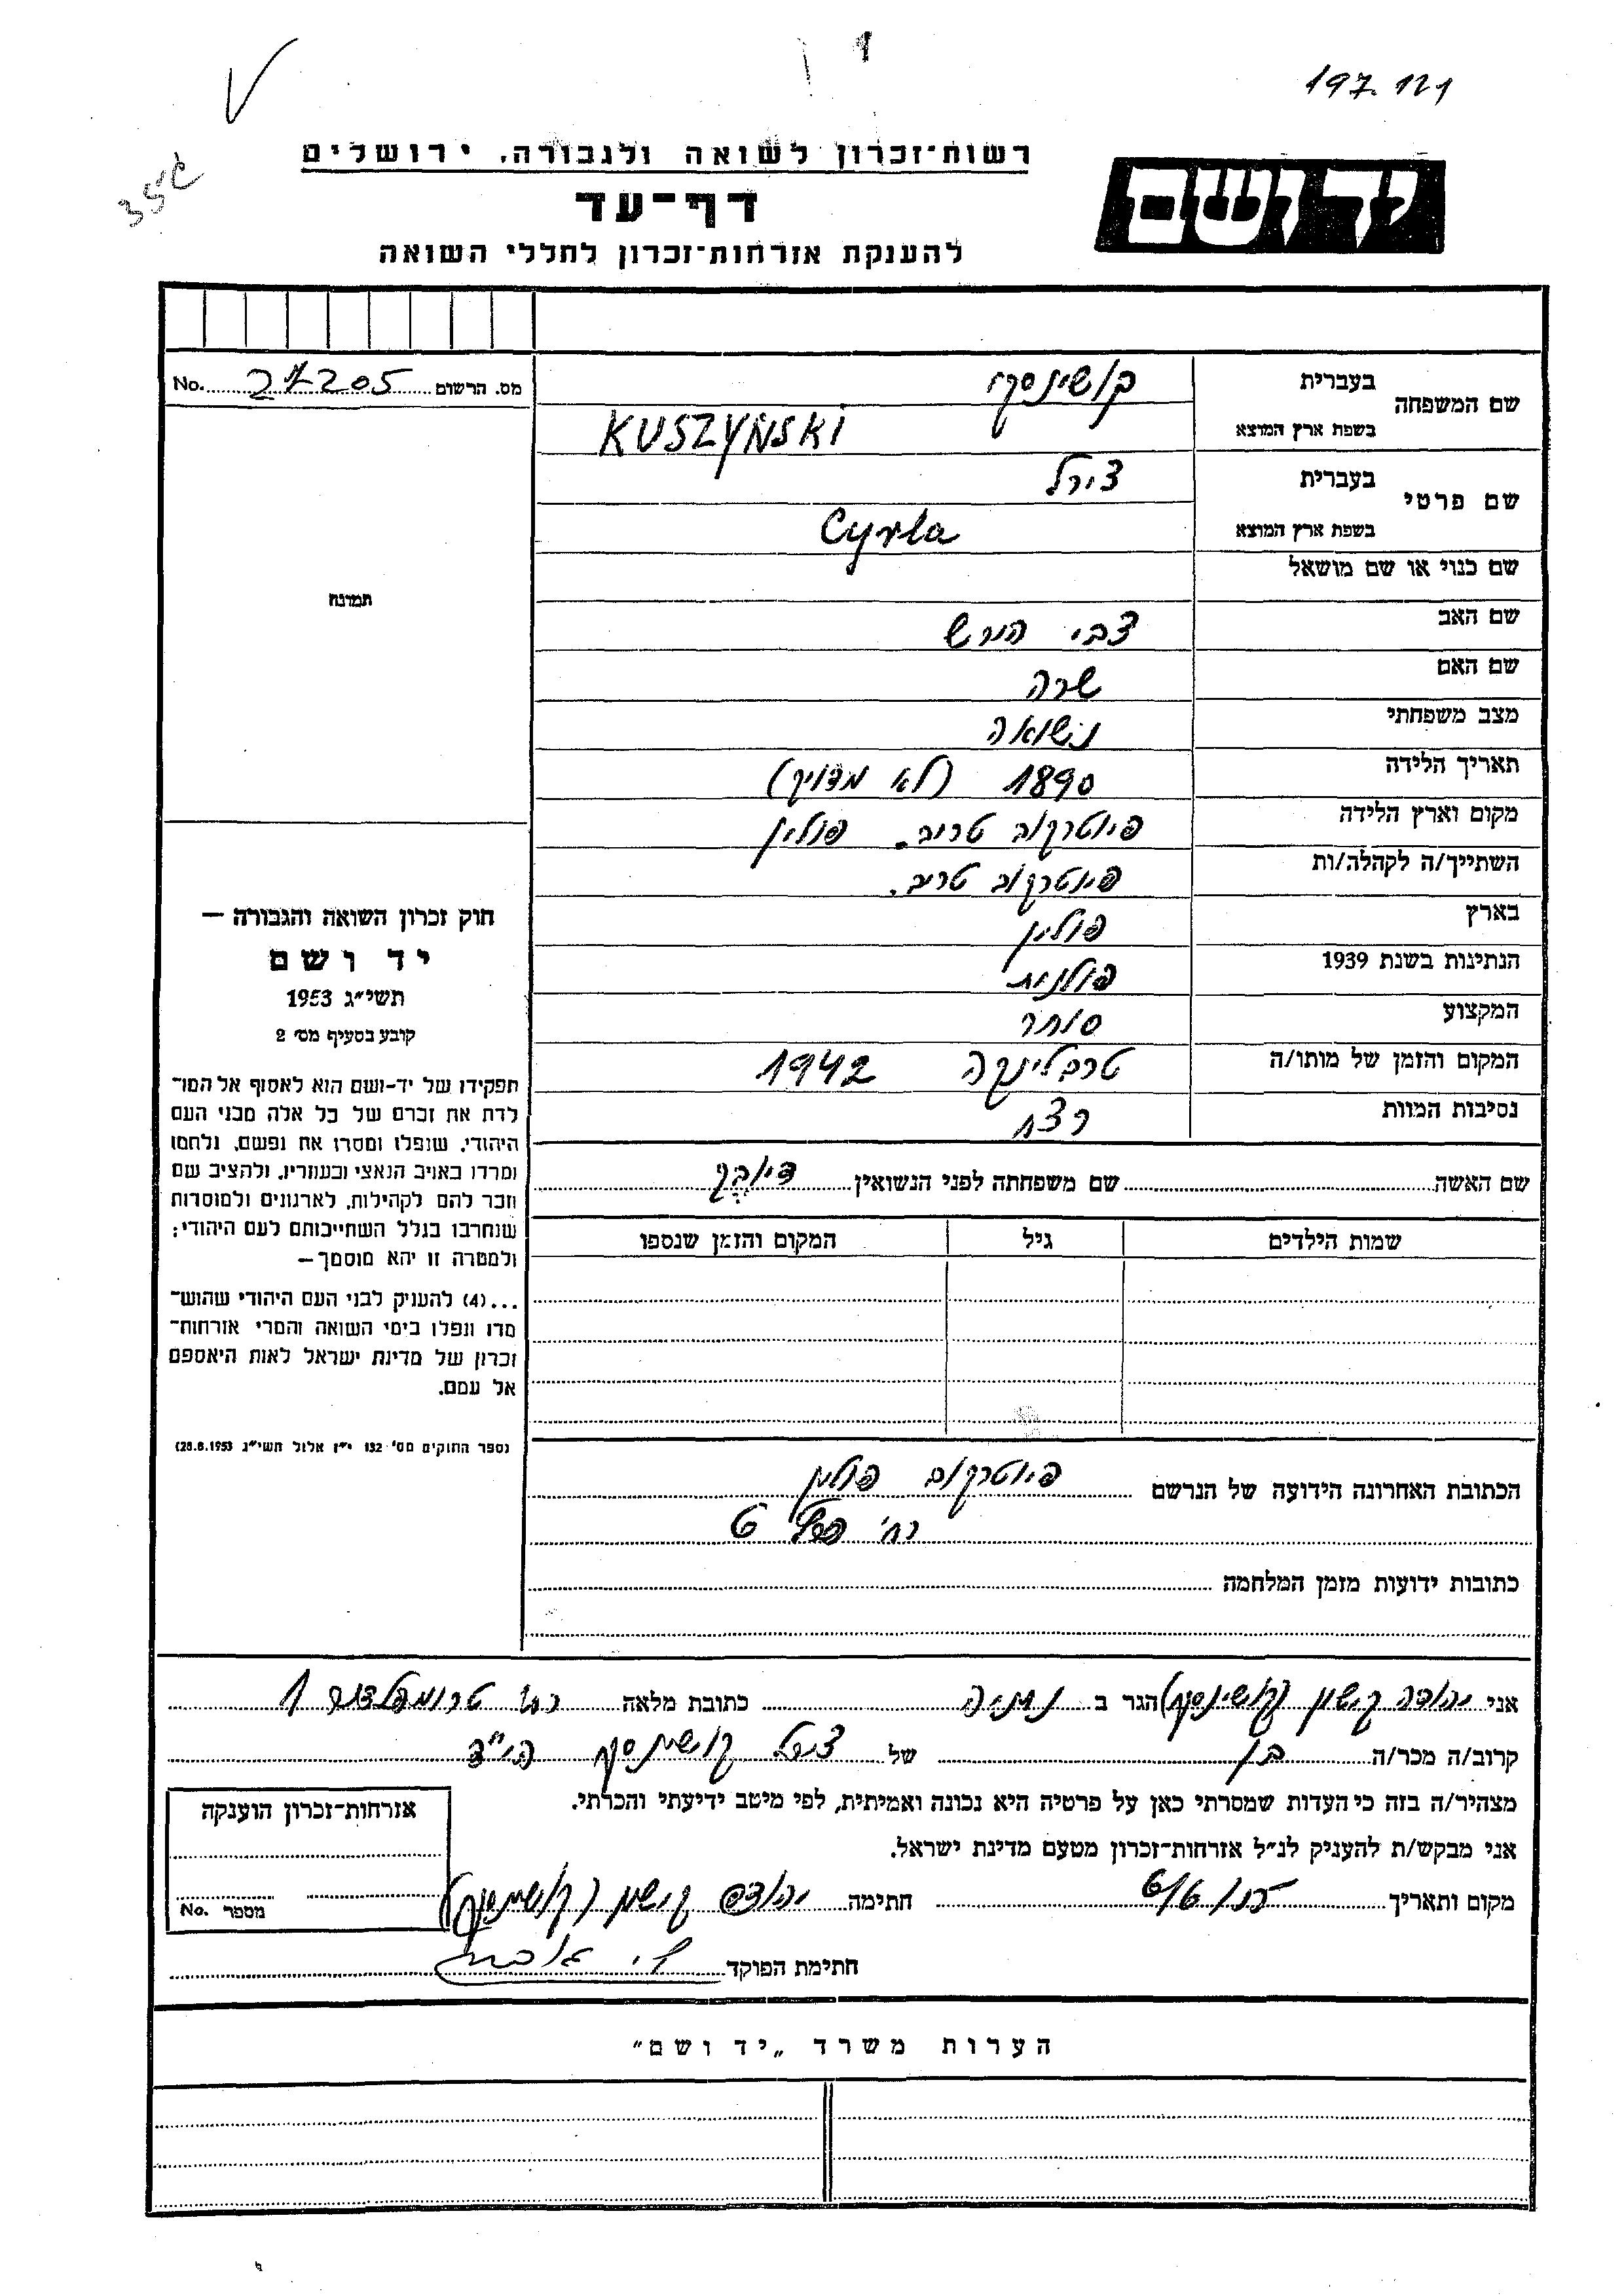 197.121
רשות־זכרון לשואה ולגבורה, ירושלים
יד ושם
דף־עד
להענקת אזרחות־זכרון לחללי השואה
מס. הרשום 27205 No.
תמונה
שם המשפחה
בעברית קושינסקי
בשפת ארץ המוצא KUSZYŃSKI
שם פרטי
בעברית צירל
בשפת ארץ המוצא Cyrla
שם כנוי או שם מושאל
שם האב צבי הירש
שם האם שרה
מצב משפחתי נשואה
תאריך הלידה 1890 (לא מדויק)
מקום וארץ הלידה פיוטרקוב טריב. פולין
השתייך/ה לקהלה/ות פיוטרקוב טריב.
בארץ פולין
הנתינות בשנת 1939 פולנית
המקצוע סוחר
המקום והזמן של מותו/ה טרבלינקה 1942
נסיבות המוות רצח
שם האשה שם משפחתה לפני הנשואין
שמות הילדים גיל המקום והזמן שנספו
חוק זכרון השואה והגבורה —
יד ושם
תשי״ג 1953
קובע בסעיף מס׳ 2
תפקידו של יד-ושם הוא לאסוף אל המו־
לדת את זכרם של כל אלה מבני העם
היהודי, שנפלו ומסרו את נפשם, נלחמו
ומרדו באויב הנאצי ובעוזריו, ולהציב שם
וזכר להם לקהילות, לארגונים ולמוסדות
שנחרבו בגלל השתייכותם לעם היהודי;
ולמטרה זו יהא מוסמך —
...(4) להעניק לבני העם היהודי שהוש־
מדו ונפלו בימי השואה והמרי אזרחות־
זכרון של מדינת ישראל לאות היאספם
אל עמם.
(ספר החוקים מס׳ 132 י״ז אלול תשי״ג 28.8.1953)
הכתובת האחרונה הידועה של הנרשם פיוטרקוב פולין
רח׳ 6
כתובות ידועות מזמן המלחמה
אני יהודה קישון (קושינסקי) הגר ב נתניה כתובת מלאה רח׳ טרומפלדור 1
קרוב/ה מכר/ה בן של צירל קושינסקי הי״ד
מצהיר/ה בזה כי העדות שמסרתי כאן על פרטיה היא נכונה ואמיתית, לפי מיטב ידיעתי והכרתי.
אני מבקש/ת להעניק לנ״ל אזרחות־זכרון מטעם מדינת ישראל.
מקום ותאריך חתימה יהודה קישון (קושינסקי)
חתימת הפוקד
אזרחות־זכרון הוענקה
מספר No.
הערות משרד „יד ושם״